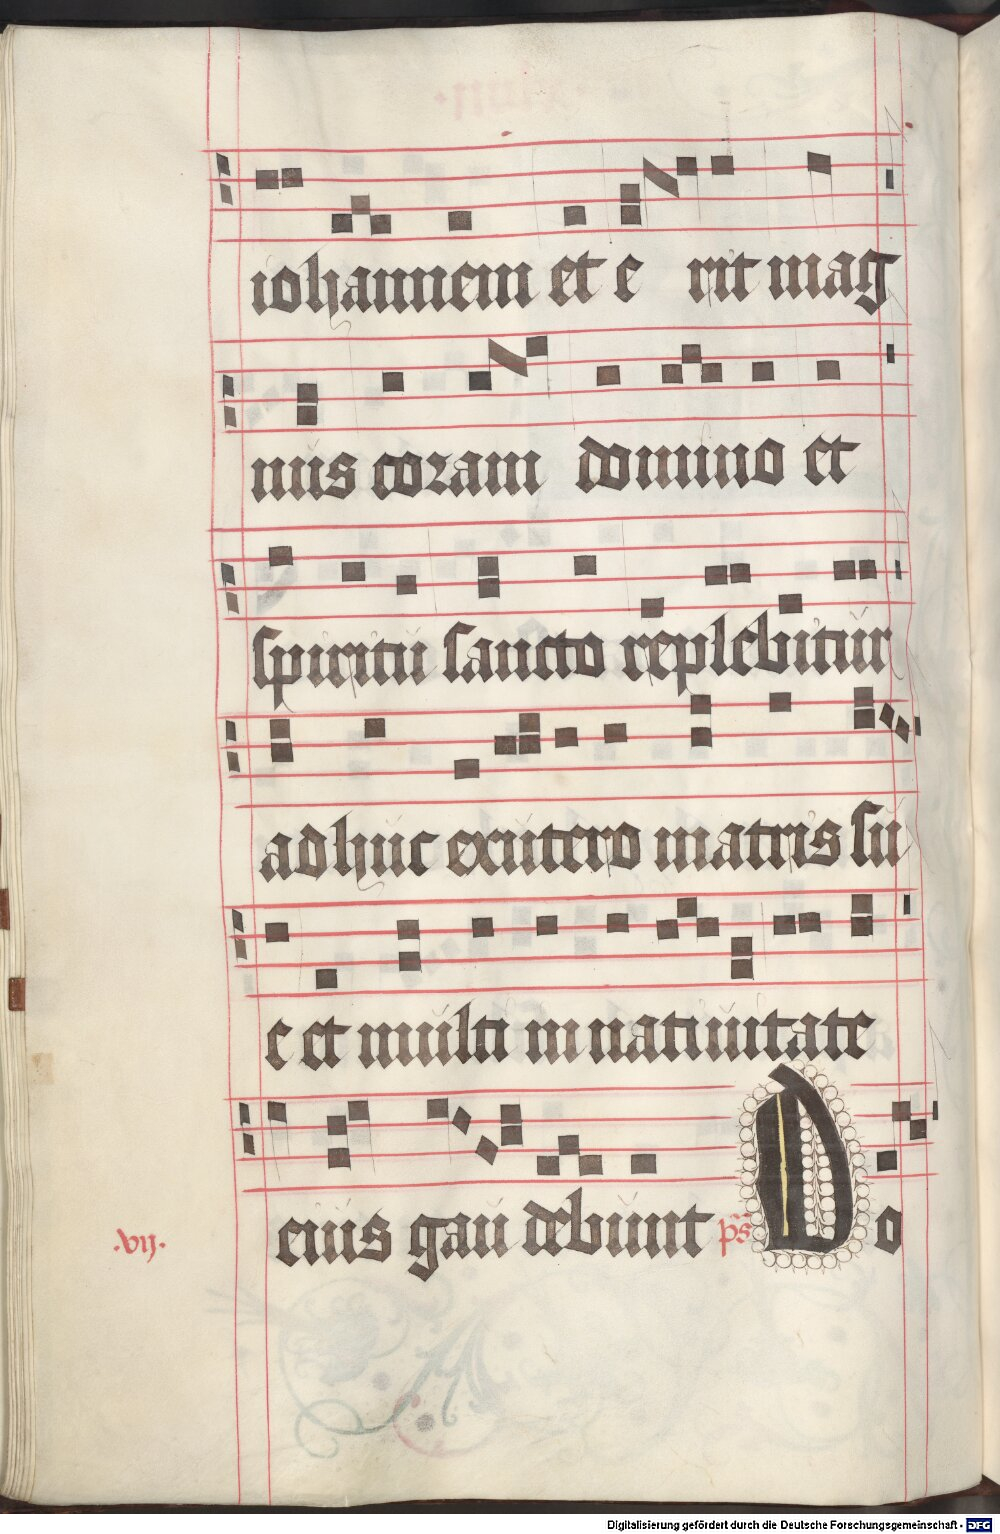 iohannem et e rit mag
nus coram domino et
spiritu sancto replebitur
adhuc ex utero matris su
e et multi in natiuitate
.vij. eius gau debunt ps Do
Digitalisierung gefördert durch die Deutsche Forschungsgemeinschaft - DFG